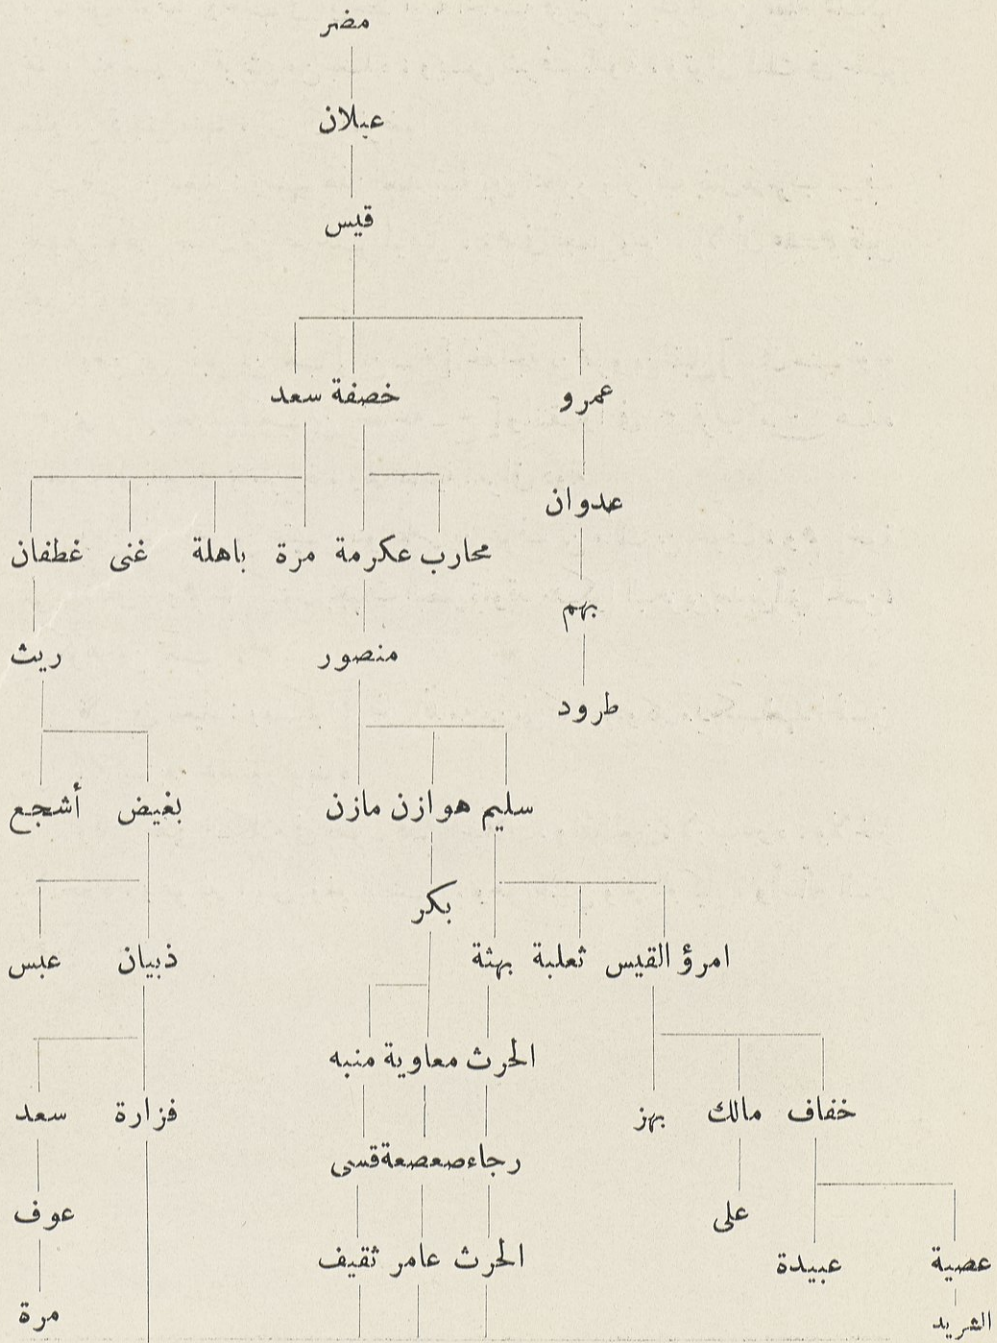 مضر
عيلان
قيس
عمرو خصفة سعد
عدوان
محارب عكرمة مرة باهلة غنى غطفان
بهم
منصور ريث
طرود
سليم هوازن مازن بغيض أشجع
بكر
امرؤ القيس ثعلبة بهثة ذبيان عبس
الحرث معاوية منبه
خفاف مالك بهز فزارة سعد
رجاء صعصعة قسى
على عوف
الحرث عامر ثقيف
عصية عبيدة
الشريد مرة